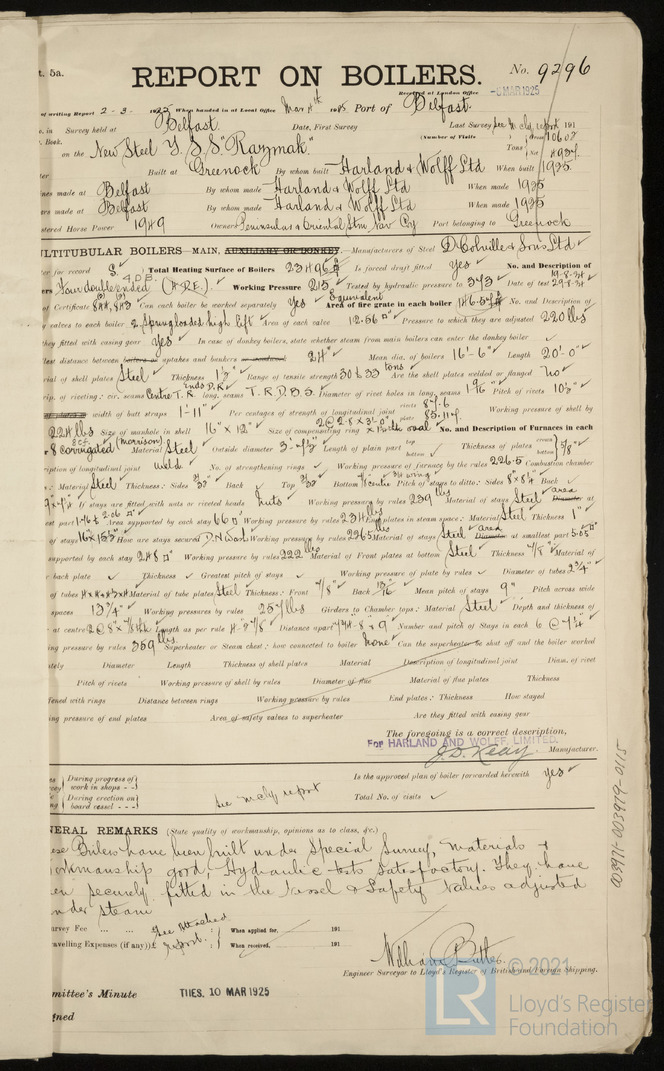 t. 5a.
REPORT ON BOILERS.
No. 9296
Received at London Office -6 MAR 1925
of writing Report 2-3- 1925 When handed in at Local Office Mar 4th 1925 Port of Belfast.
o. in Survey held at Belfast. Date, First Survey Last Survey See Mchy report 191
Book. (Number of Visits Gross 10602
on the New Steel T.S.S "Razmak" Tons
Built at Greenock By whom built Harland & Wolff Ltd When built 1925.
nes made at Belfast By whom made Harland & Wolff Ltd When made 1925
rs made at Belfast By whom made Harland & Wolff Ltd When made 1925
tered Horse Power 1949 Owners Peninsular & Oriental Stm Nav Coy Port belonging to Greenock
ULTITUBULAR BOILERS MAIN, AUXILIARY OR DONKEY. Manufacturers of Steel D. Colville & Sons Ltd
er for record S. Total Heating Surface of Boilers 23496 Is forced draft fitted Yes No. and Description of
ers Four double ended 4 D B Working Pressure 215 Tested by hydraulic pressure to 373 Date of test 19-8-24 29-8-24
of Certificate Can each boiler be worked separately Yes Area of fire grate in each boiler Equivalent No. and Description of
y valves to each boiler 2 Spring loaded high lift Area of each valve 12.56 □" Pressure to which they are adjusted 220 lbs
hey fitted with easing gear Yes In case of donkey boilers, state whether steam from main boilers can enter the donkey boiler
est distance between boilers or uptakes and bunkers or woodwork 24" Mean dia. of boilers 16'-6" Length 20'-0"
ial of shell plates Steel Thickness Range of tensile strength 30 & 33 tons Are the shell plates welded or flanged No
rip. of riveting: cir. seams Centre T.R. ends D.R. long. seams T.R.D.B.S. Diameter of rivet holes in long. seams 1 9/16 Pitch of rivets 10 1/2
width of butt straps 1'-11" Per centages of strength of longitudinal joint rivets plate Working pressure of shell by
224 lbs Size of manhole in shell 16" x 12" Size of compensating ring No. and Description of Furnaces in each
r 8 corrugated (Morrison) Material Steel Outside diameter Length of plain part top bottom Thickness of plates crown bottom } 5/8"
iption of longitudinal joint weld No. of strengthening rings Working pressure of furnace by the rules 226.5 Combustion chamber
s: Material Steel Thickness: Sides Back Top Bottom Pitch of stays to ditto: Sides 8 x 8 1/4 Back
If stays are fitted with nuts or riveted heads nuts Working pressure by rules 239 lbs Material of stays Steel Diameter area at
est part Area supported by each stay 66 □" Working pressure by rules 234 lbs End plates in steam space: Material Steel Thickness 1"
of stays How are stays secured D.N. & Washers Working pressure by rules 226.5 lbs Material of stays Steel Diameter area at smallest part 3.05 □"
supported by each stay 248 □" Working pressure by rules 222 lbs Material of Front plates at bottom Steel Thickness 7/8" Material of
r back plate Thickness Greatest pitch of stays Working pressure of plate by rules Diameter of tubes 2 3/4"
of tubes Material of tube plates Steel Thickness: Front 7/8" Back 13/16" Mean pitch of stays 9" Pitch across wide
spaces 13 3/4" Working pressures by rules 257 lbs Girders to Chamber tops: Material Steel Depth and thickness of
at centre Length as per rule Distance apart Number and Pitch of Stays in each
ng pressure by rules 359 lbs Superheater or Steam chest; how connected to boiler None Can the superheater be shut off and the boiler worked
ately Diameter Length Thickness of shell plates Material Description of longitudinal joint Diam. of rivet
Pitch of rivets Working pressure of shell by rules Diameter of flue Material of flue plates Thickness
ened with rings Distance between rings Working pressure by rules End plates: Thickness How stayed
ng pressure of end plates Area of safety valves to superheater Are they fitted with easing gear
The foregoing is a correct description,
For HARLAND AND WOLFF, LIMITED.
J. D. Keay. Manufacturer.
During progress of work in shops Is the approved plan of boiler forwarded herewith Yes
During erection on board vessel See Mchy report Total No. of visits
NERAL REMARKS (State quality of workmanship, opinions as to class, &c.)
ese Boilers have been built under Special Survey, materials &
orkmanship good. Hydraulic tests satisfactory. They have
en securely fitted in the Vessel & Safety Valves adjusted
nder steam
urvey Fee See attached report. When applied for, 191
avelling Expenses (if any) £ When received, 191
William Butler.
Engineer Surveyor to Lloyd's Register of British and Foreign Shipping.
mittee's Minute TUES. 10 MAR 1925
gned
003971-003979-0115
LR
© 2021
Lloyd's Register
Foundation